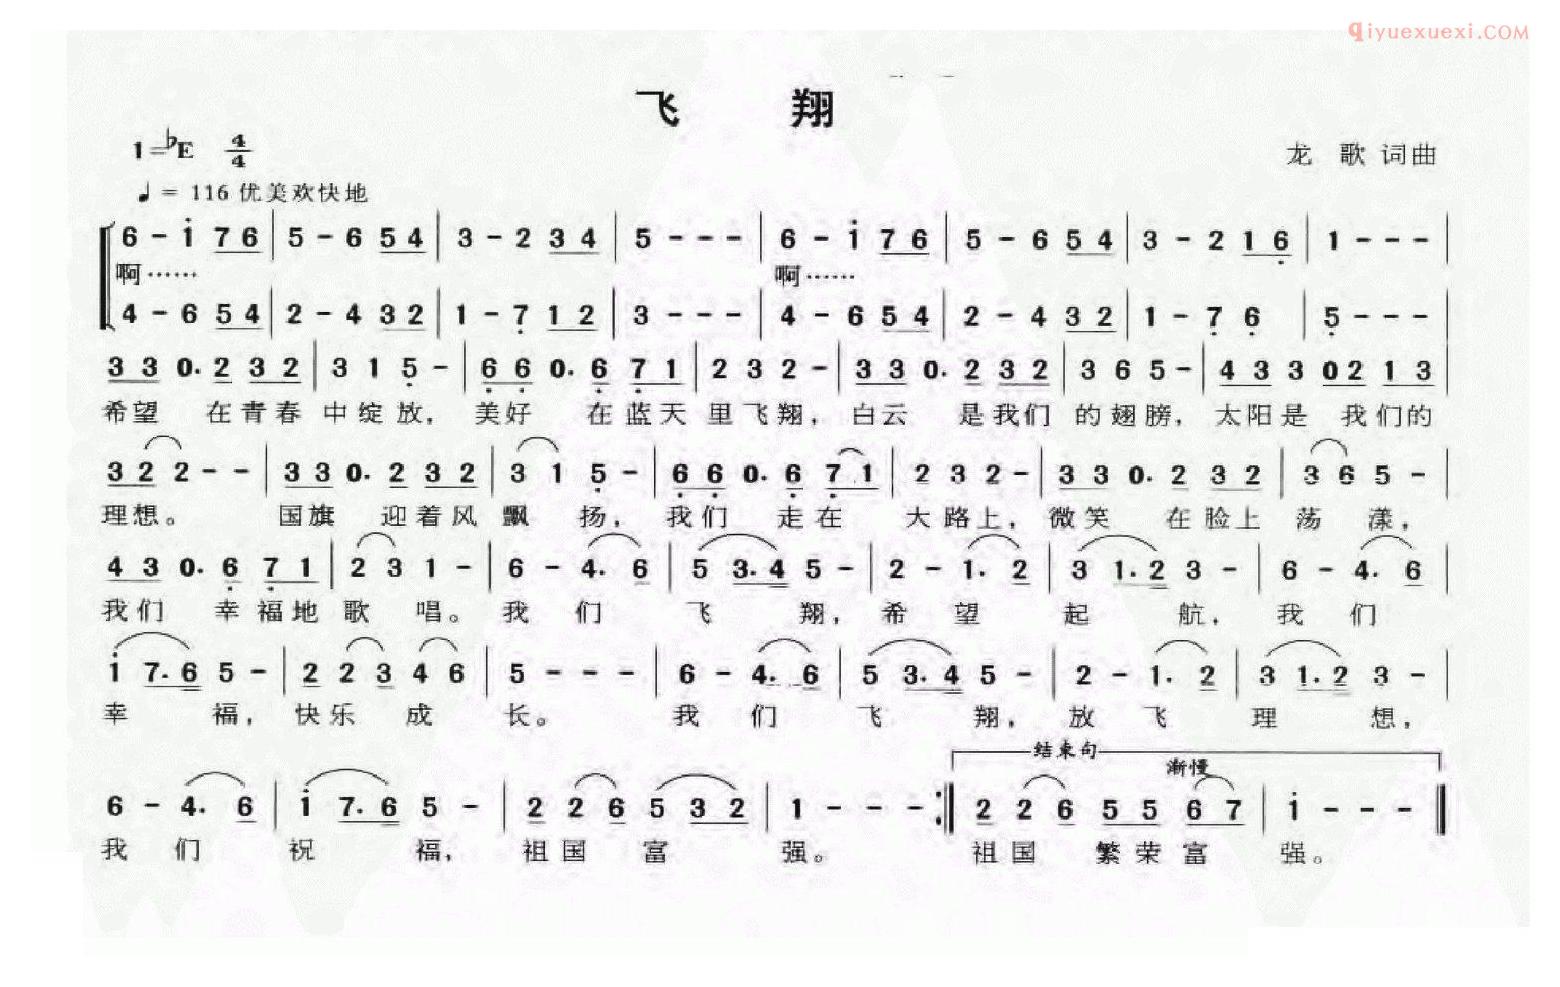 qiyuexuexi.COM
飞 翔
1=♭E 4/4
龙 歌 词曲
♩= 116 优美欢快地
6 - i 7 6 | 5 - 6 5 4 | 3 - 2 3 4 | 5 - - - | 6 - i 7 6 | 5 - 6 5 4 | 3 - 2 1 6 | 1 - - - |
啊…… 啊……
4 - 6 5 4 | 2 - 4 3 2 | 1 - 7 1 2 | 3 - - - | 4 - 6 5 4 | 2 - 4 3 2 | 1 - 7 6 | 5 - - - |
3 3 0. 2 3 2 | 3 1 5 - | 6 6 0. 6 7 1 | 2 3 2 - | 3 3 0. 2 3 2 | 3 6 5 - | 4 3 3 0 2 1 3 |
希望 在青春 中绽放, 美好 在蓝天 里飞翔, 白云 是我们 的翅膀, 太阳是 我们的
3 2 2 - - | 3 3 0. 2 3 2 | 3 1 5 - | 6 6 0. 6 7 1 | 2 3 2 - | 3 3 0. 2 3 2 | 3 6 5 - |
理想。 国旗 迎着风 飘 扬, 我们 走在 大路上, 微笑 在脸上 荡 漾,
4 3 0. 6 7 1 | 2 3 1 - | 6 - 4. 6 | 5 3. 4 5 - | 2 - 1. 2 | 3 1. 2 3 - | 6 - 4. 6 |
我们 幸福地 歌 唱。 我 们 飞 翔, 希 望 起 航, 我 们
i 7. 6 5 - | 2 2 3 4 6 | 5 - - - | 6 - 4. 6 | 5 3. 4 5 - | 2 - 1. 2 | 3 1. 2 3 - |
幸 福, 快乐 成 长。 我 们 飞 翔, 放 飞 理 想,
结束句
渐慢
6 - 4. 6 | i 7. 6 5 - | 2 2 6 5 3 2 | 1 - - - :‖ 2 2 6 5 5 6 7 | i - - - ‖
我 们 祝 福, 祖国 富 强。 祖国 繁荣富 强。